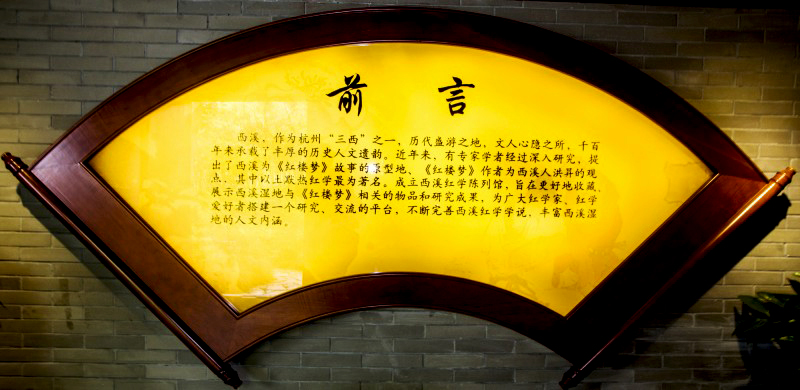 前言
西溪，作为杭州“三西”之一，历代盛游之地，文人心隐之所，千百
年来承载了丰厚的历史人文遗韵。近年来，有专家学者经过深入研究，提
出了西溪为《红楼梦》故事的原型地、《红楼梦》作者为西溪人洪昇的观
点，其中以土默热红学最为著名。成立西溪红学陈列馆，旨在更好地收藏、
展示西溪湿地与《红楼梦》相关的物品和研究成果，为广大红学家、红学
爱好者搭建一个研究、交流的平台，不断完善西溪红学学说，丰富西溪湿
地的人文内涵。